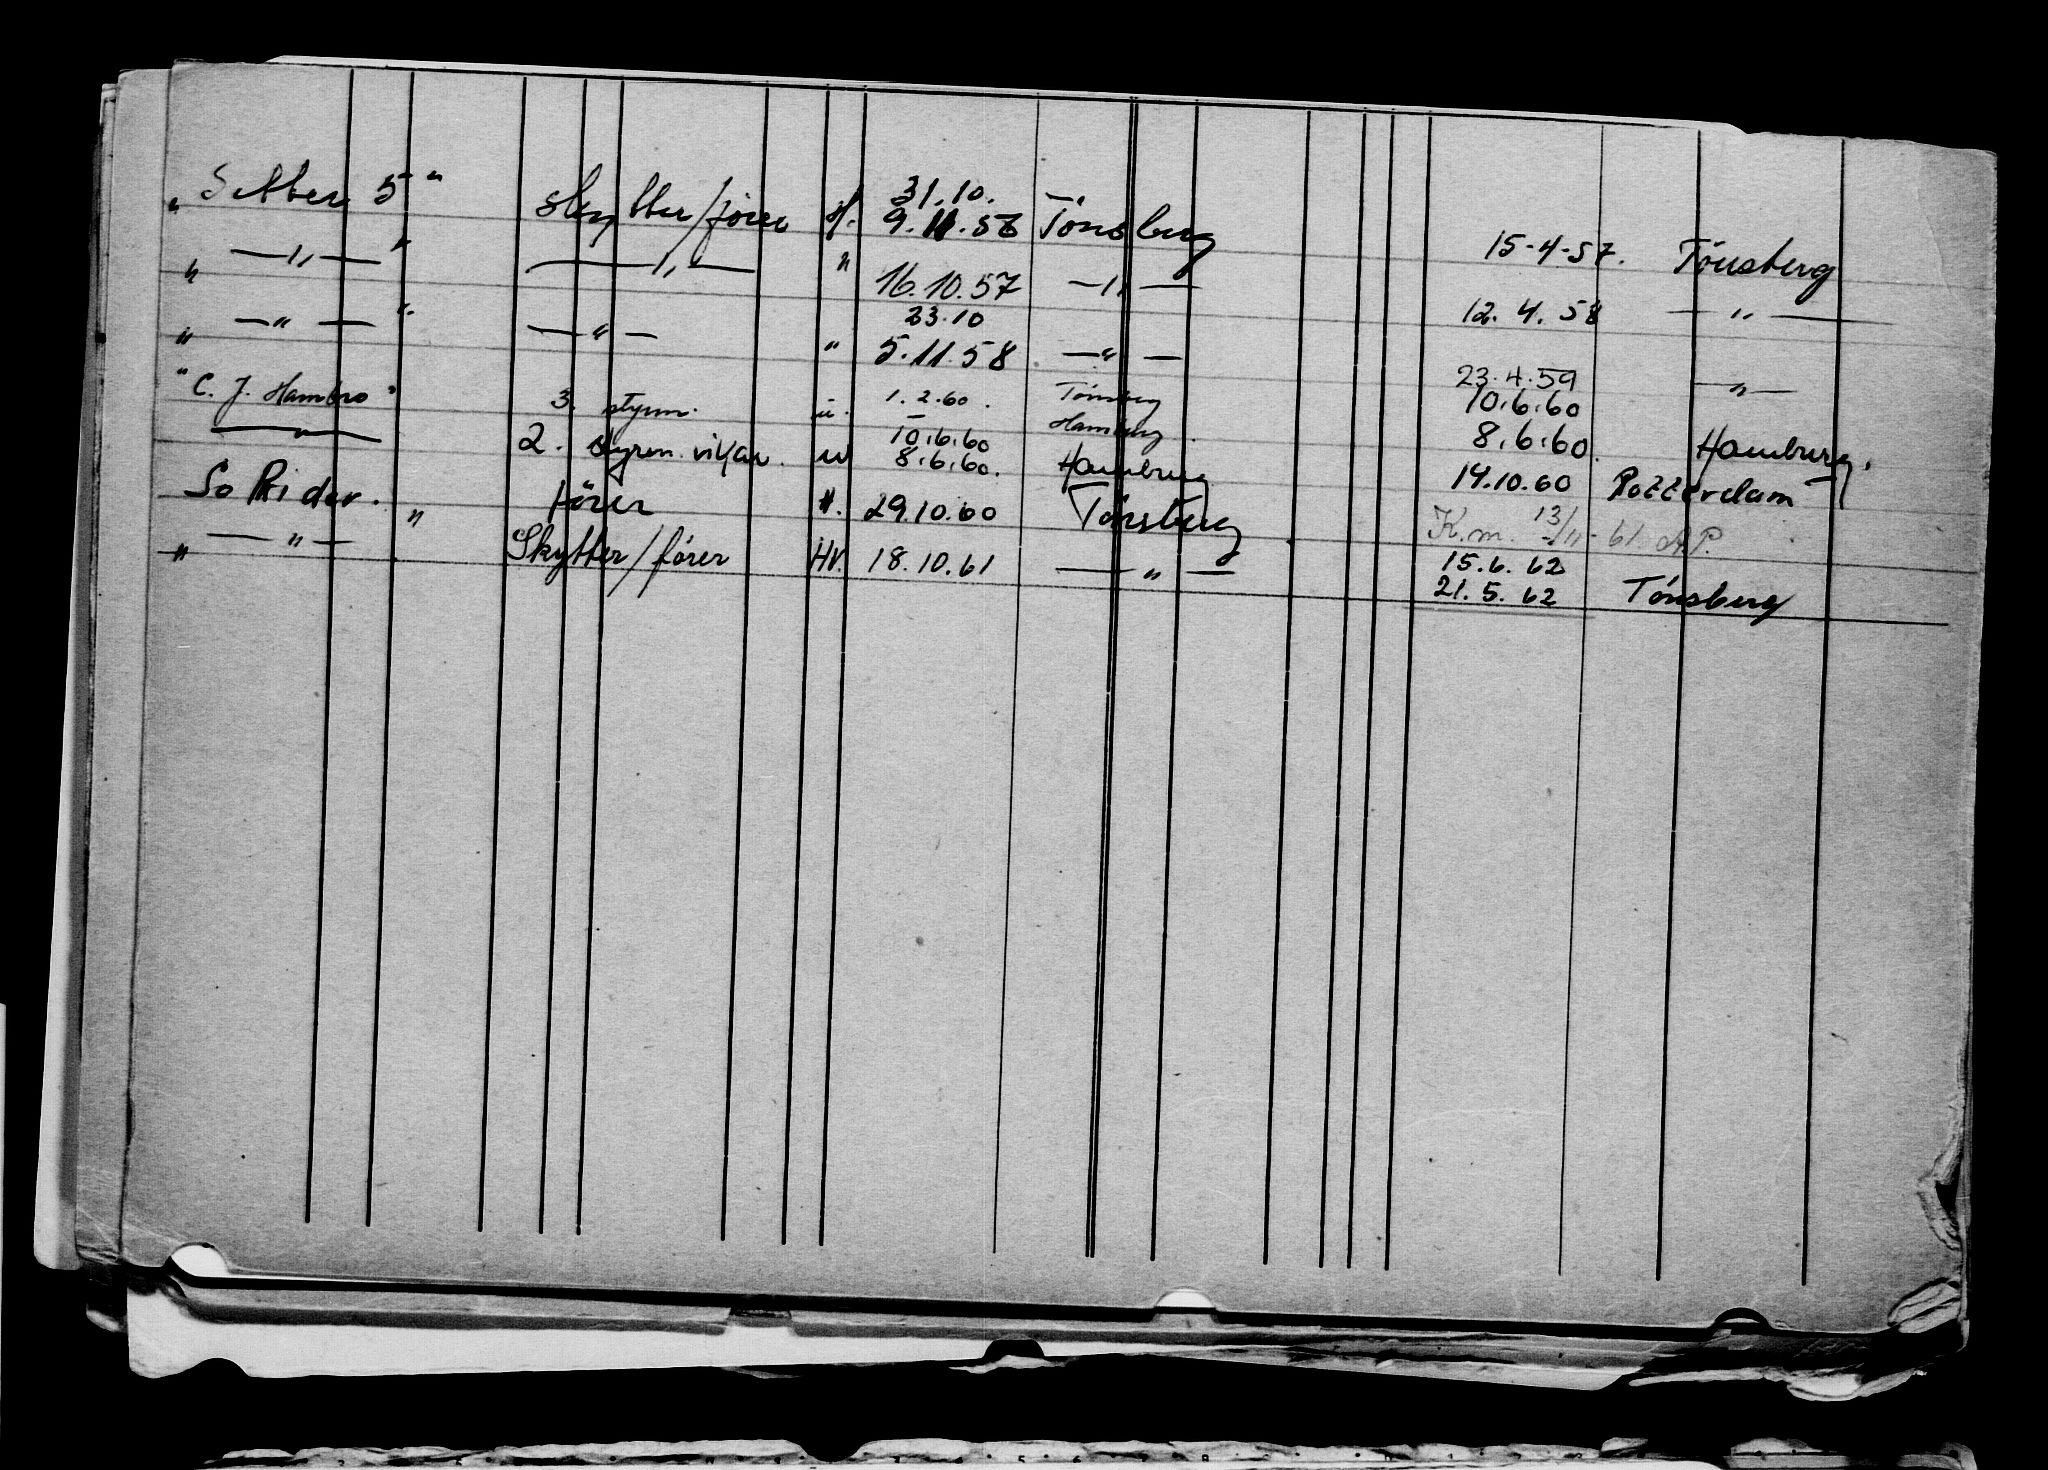 "Setter 5" skytter/fører H. 31.10. 9.11.56 Tønsberg 15-4-57. Tønsberg
" —„— " —„— " 16.10.57 —„— 12.4.58 —„—
" —„— " —„— " 23.10 5.11.58 —„— 23.4.59 —„—
"C. J. Hambro" 3. styrm. u. 1.2.60. Tønsberg 10.6.60
—„— 2. styrm. vikar. u 10.6.60 Hamburg. 8.6.60. Hamburg.
8.6.60. Hamburg 14.10.60 Rotterdam
So Rider. fører 29.10.60 Tønsberg K.m. 13/11-61 A.P.
" —„— " Skytter/fører Hv. 18.10.61 —„— 15.6.62
21.5.62 Tønsberg